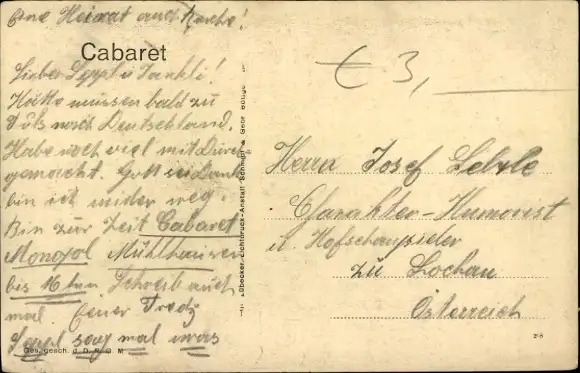 Eine Heimat auch Kirche!
Cabaret
Lieber Seppl u Tankli!
Hätte müssen bald zu
Fuß nach Deutschland.
Habe noch viel mit Durch
gemacht. Gott sei Dank
bin ich wider weg.
Bin zur Zeit Cabaret
Mongol Mühlhausen
bis 16ten Schreib auch
mal. Euer Fredy
Seppl sag mal was
Ges. gesch. d. D. R. G. M
Lübecker Lichtdruck-Anstalt Schmidt & Gebr
€ 3,
Herrn Josef
Charakter-Humorist
u Hofschauspieler
zu Lochau
Österreich